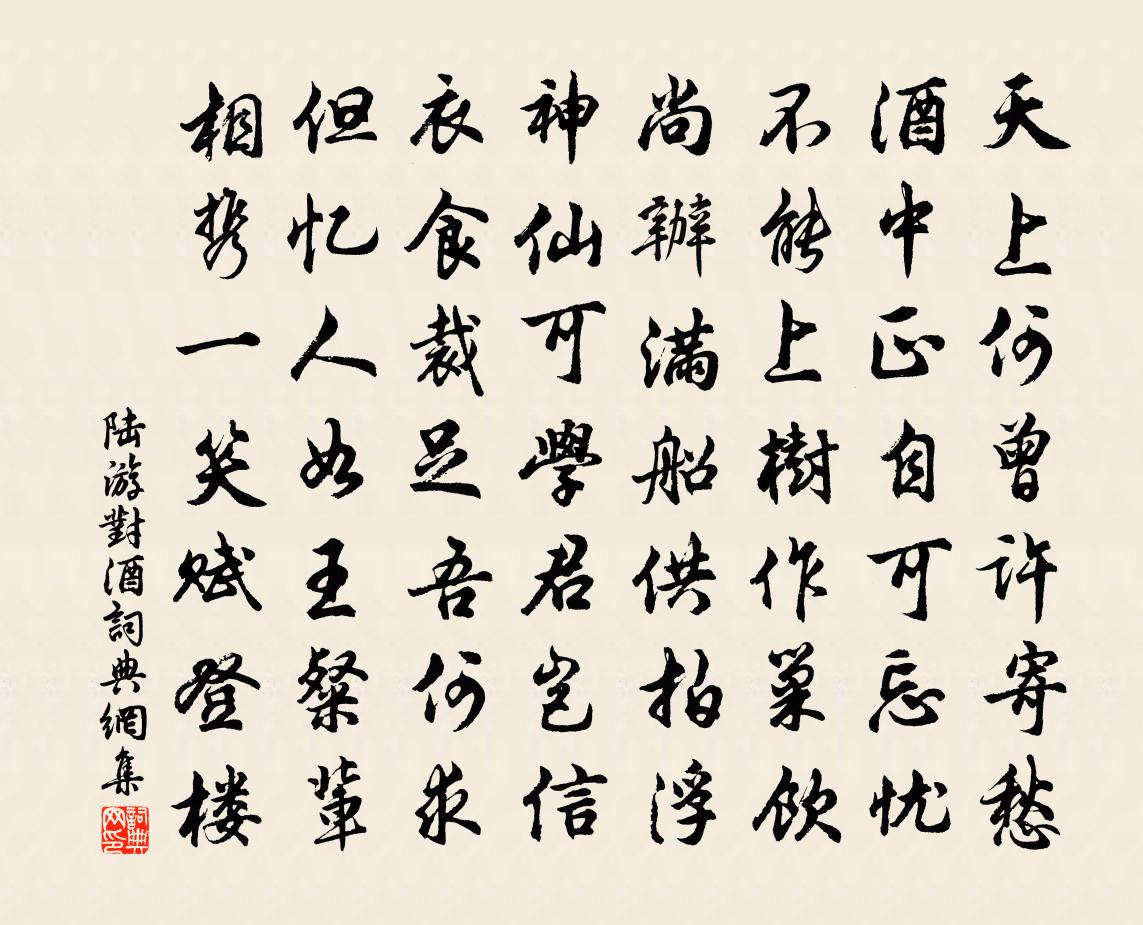 天上何曾许寄愁
酒中正自可忘忧
不能上樹作巢飲
尚辦满船供拍浮
神仙可學君岂信
衣食裁足吾何求
但忆人如王粲輩
相携一笑赋登楼
陆游對酒詞典網集
詞典网印